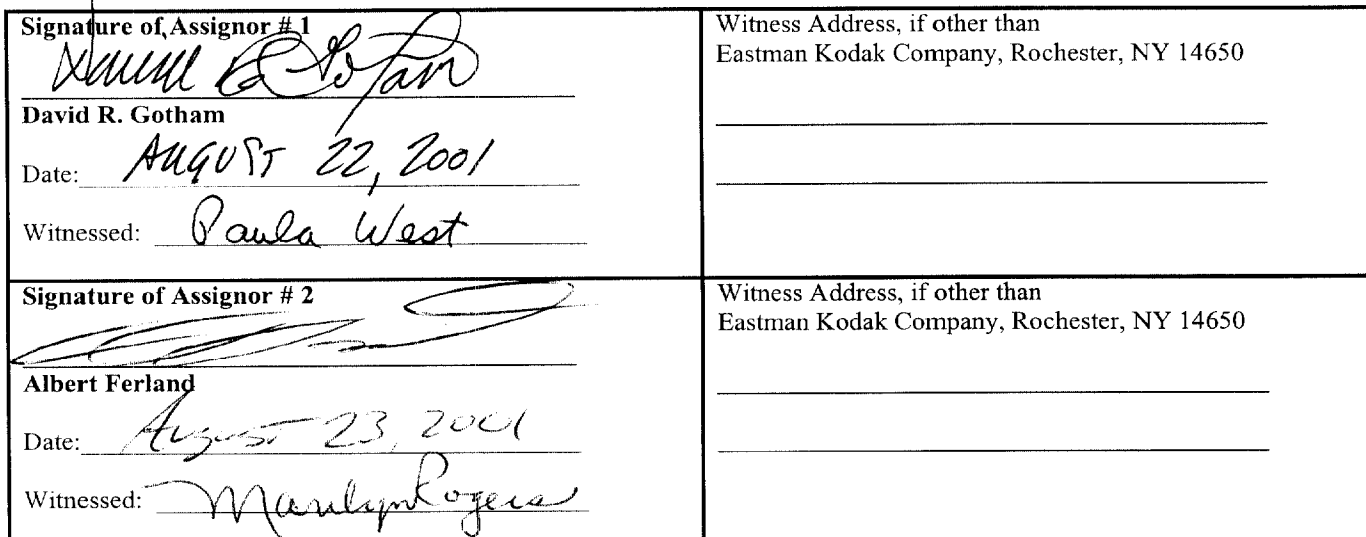 Signature of Assignor # 1
David R. Gotham
Date: AUGUST 22, 2001
Witnessed: Paula West
Witness Address, if other than
Eastman Kodak Company, Rochester, NY 14650
Signature of Assignor # 2
Albert Ferland
Date: August 23, 2001
Witnessed: Marilyn Rogers
Witness Address, if other than
Eastman Kodak Company, Rochester, NY 14650